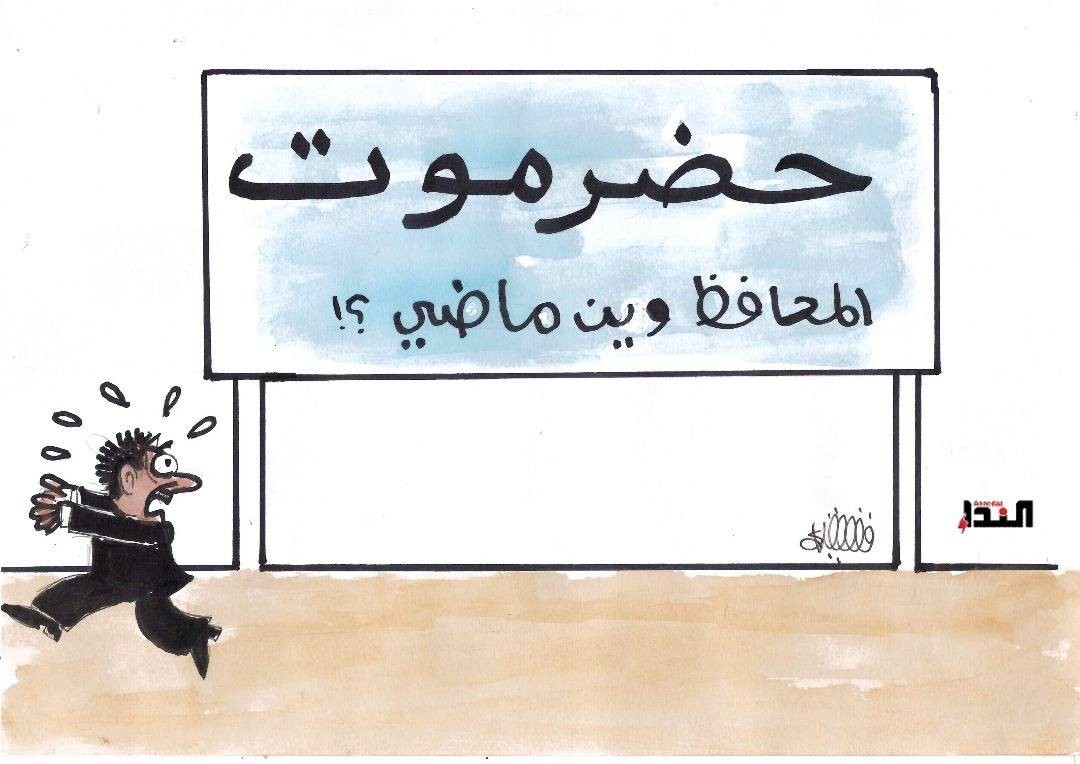 حضرموت
المحافظ وين ماضي ؟!
Annedaa
النداء